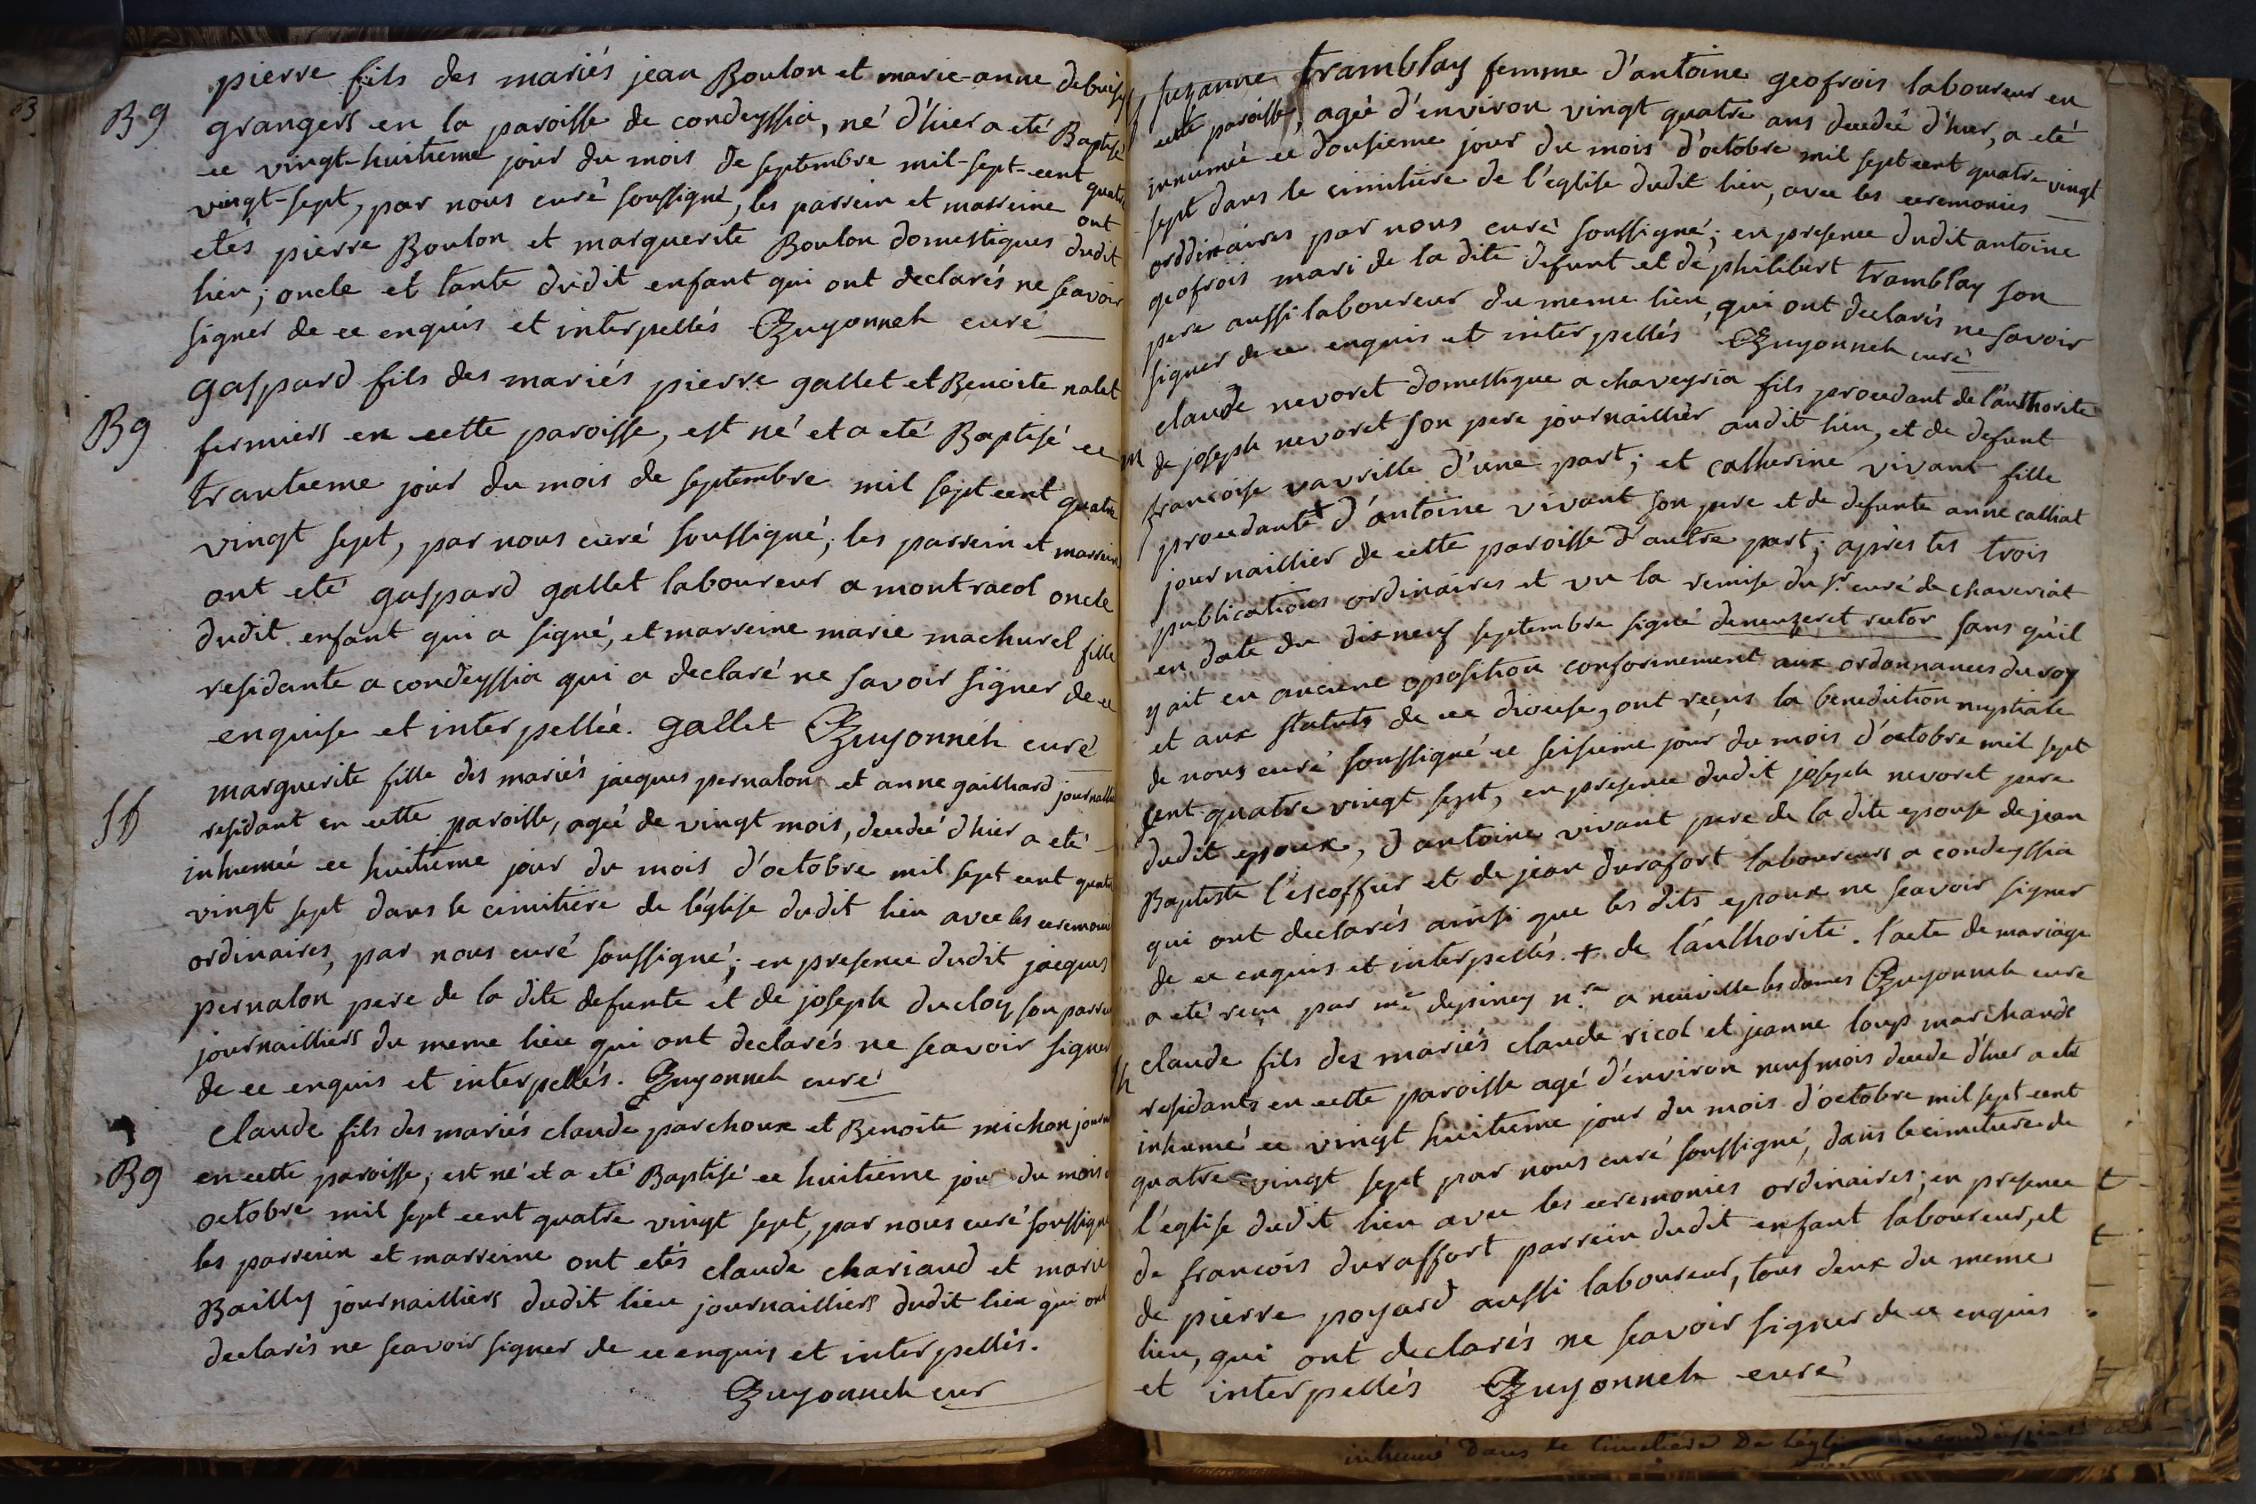 pierre fils des mariés jean Boulon et marie-anne
B g grangers en la paroisse de condeyssia, né d'hier a eté Baptisé
ce vingt-huitieme jour du mois de septembre mil-sept-cent quatre
vingt-sept, par nous curé soussigné, les parrein et marreine ont
etés pierre Boulon et marguerite Boulon domestiques dudit
lieu; oncle et tante dudit enfant qui ont declarés ne scavoir
signer de ce enquis et interpellés Guyonneh curé
gaspard fils des mariés pierre gallet et Benoite nalet
B g fermiers en cette paroisse, est né et a eté Baptisé ce
trantieme jour du mois de septembre mil sept cent quatre
vingt sept, par nous curé soussigné; les parrein et marreine
ont eté gaspard gallet laboureur a montracol oncle
dudit enfant qui a signé, et marreine marie machurel fille
residante a condeyssia qui a declaré ne savoir signer de ce
enquise et interpellée. gallet Guyonneh curé
marguerite fille des mariés jacques pernalon et anne gailhard
Sf residant en cette paroisse, agée de vingt mois, decedée d'hier a eté
inhumée ce huitieme jour du mois d'octobre mil sept cent quatre
vingt sept dans le cimitiere de l'églize dudit lieu avec les ceremonies
ordinaires, par nous curé soussigné; en presence dudit jacques
pernalon pere de la dite defunte et de joseph ducloy, son parrein
journailliers du meme lieu qui ont declarés ne scavoir signer
de ce enquis et interpellés. Guyonneh curé
Claude fils des mariés claude parchoux et Benoite michon
B g en cette paroisse; est né et a eté Baptisé ce huitieme jour du mois
octobre mil sept cent quatre vingt sept, par nous curé soussigné
les parrein et marreine ont etés claude chariaud et marie
Bailly journailliers dudit lieu journailliers dudit lieu qui ont
declarés ne scavoir signer de ce enquis et interpellés.
Guyonneh cur
suzanne tramblay femme d'antoine geofrois laboureur en
cette paroisse, agée d'environ vingt quatre ans decedée d'hier, a eté
innumée ce dousieme jour du mois d'octobre mil sept cent quatre vingt
sept dans le cimitiere de l'eglise dudit lieu, avec les ceremonies
orddinaires par nous curé soussigné; en presence dudit antoine
geofrois mari de la dite defunt et de philibert tramblay son
pere aussi laboureur du meme lieu, qui ont declarés ne savoir
signer de ce enquis et interpellés Guyonneh curé
claude nevoret domestique a chaveyria fils procedant de l'authorite
m de joseph nevoret son pere journaillier audit lieu, et de defunt
francoise vavrille d'une part; et catherine vivant fille
procedante + d'antoine vivant son pere et de defunte anne calliat
journaillier de cette paroisse d'autre part; après les trois
publications ordinaires et vu la remise du sr. curé de chaveriat
en date du dixneuf septembre signé rector sans qu'il
y ait eu aucune oposition conformement aux ordonnances du roy
et aux statuts de ce diocese, ont reçus la benediction nuptiale
de nous curé soussigné ce seisieme jour du mois d'octobre mil sept
cent quatre vingt sept, en presence dudit joseph nevoret pere
dudit epoux, d'antoine vivant pere de la dite epouse de jean
Baptiste l'escoffier et de jean durafort laboureurs a condeyssia
qui ont declarés ainsi que les dits epoux ne scavoir signer
de ce enquis et interpellés. + de l'authorite. l'acte de mariage
a eté reçu par me depiney n.re a neuville les dames Guyonneh cure
claude fils des mariés claude ricol et jeanne loup marchands
residants en cette paroisse agé d'environ neuf mois decede d'hier a eté
inhumé ce vingt huitieme jour du mois d'octobre mil sept cent
quatre-vingt sept par nous curé soussigné, dans le cimetiere de
l'eglise dudit lieu avec les ceremonies ordinaires; en presence
de francois duraffort parrein dudit enfant laboureur, et
de pierre poyard aussi laboureur, tous deux du meme
lieu, qui ont declarés ne scavoir signer de ce enquis
et interpellés Guyonneh curé
inhumé dans le cimetiere de l'église